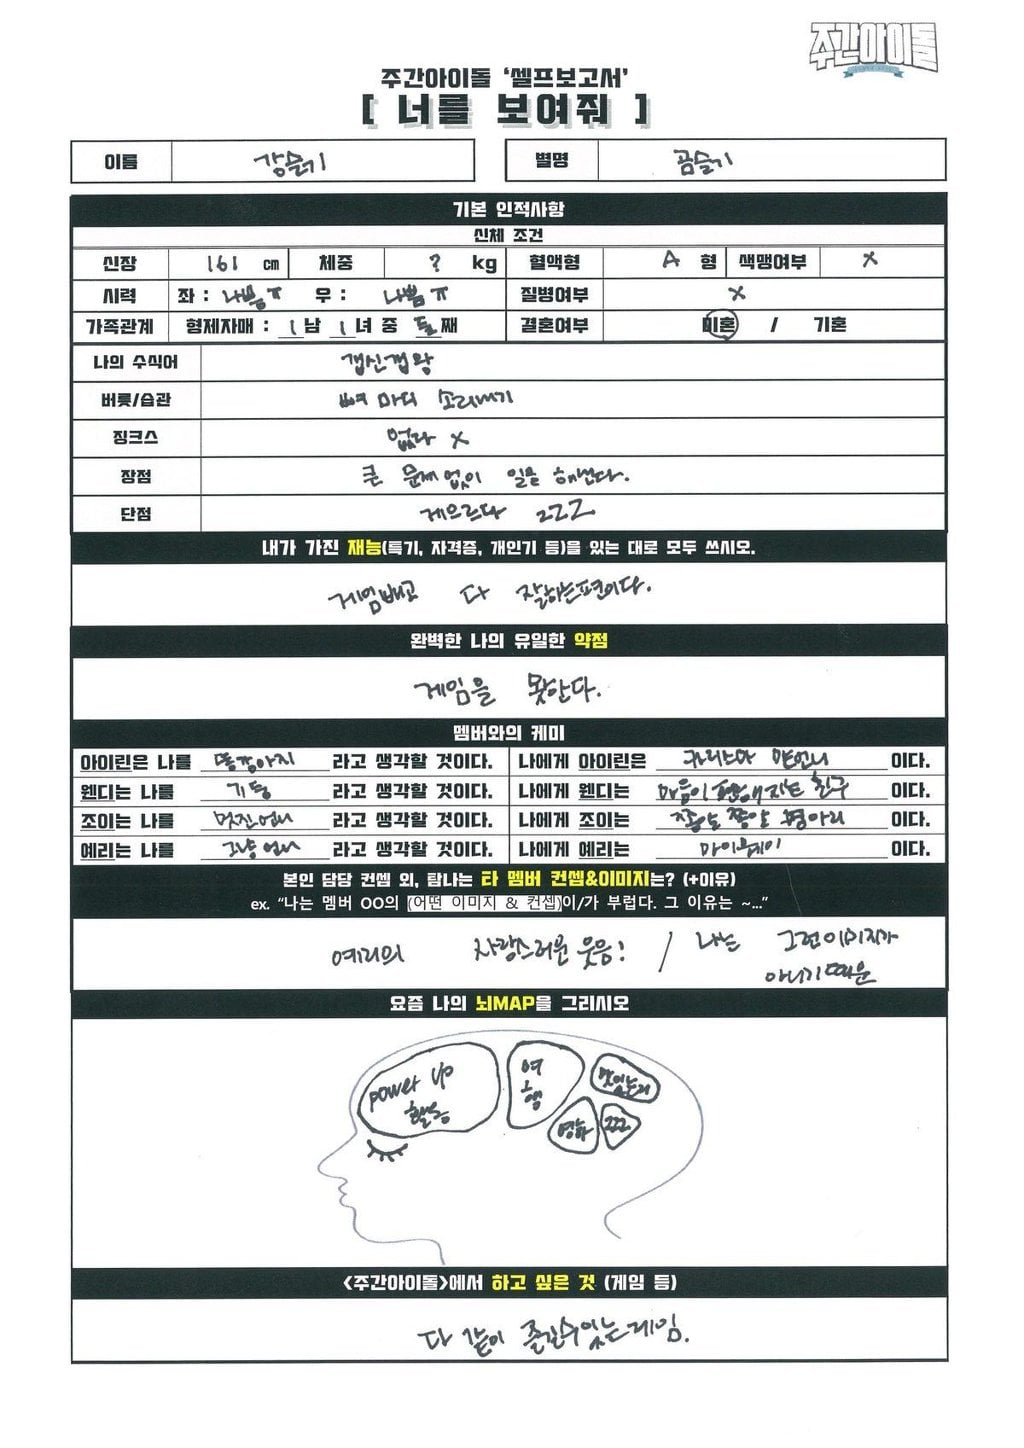 주간아이돌
주간아이돌 '셀프보고서'
[ 너를 보여줘 ]
이름 강슬기 별명 곰슬기
기본 인적사항
신체 조건
신장 161 cm 체중 ? kg 혈액형 A 형 색맹여부 X
시력 좌 : 나쁨ㅠ 우 : 나쁨ㅠ 질병여부 X
가족관계 형제자매 : 1 남 1 녀 중 둘째 결혼여부 미혼 / 기혼
나의 수식어 갭신갭왕
버릇/습관 뼈 마디 소리내기
징크스 없다 X
장점 큰 문제없이 일을 해낸다.
단점 게으르다 zzz
내가 가진 재능(특기, 자격증, 개인기 등)을 있는 대로 모두 쓰시오.
게임빼고 다 잘하는편이다.
완벽한 나의 유일한 약점
게임을 못한다.
멤버와의 케미
아이린은 나를 똥강아지 라고 생각할 것이다. 나에게 아이린은 카리스마 맏언니 이다.
웬디는 나를 기둥 라고 생각할 것이다. 나에게 웬디는 마음이 편해지는 친구 이다.
조이는 나를 멋진언니 라고 생각할 것이다. 나에게 조이는 쫑알쫑알 병아리 이다.
예리는 나를 그냥 언니 라고 생각할 것이다. 나에게 예리는 마이웨이 이다.
본인 담당 컨셉 외, 탐나는 타 멤버 컨셉&이미지는? (+이유)
ex. "나는 멤버 OO의 (어떤 이미지 & 컨셉)이/가 부럽다. 그 이유는 ~..."
예리의 사랑스러운 웃음! / 나는 그런이미지가
아니기때문
요즘 나의 뇌MAP을 그리시오
power up
활동
여행
맛있는거
영화
zzz
<주간아이돌>에서 하고 싶은 것 (게임 등)
다 같이 즐길수있는게임.